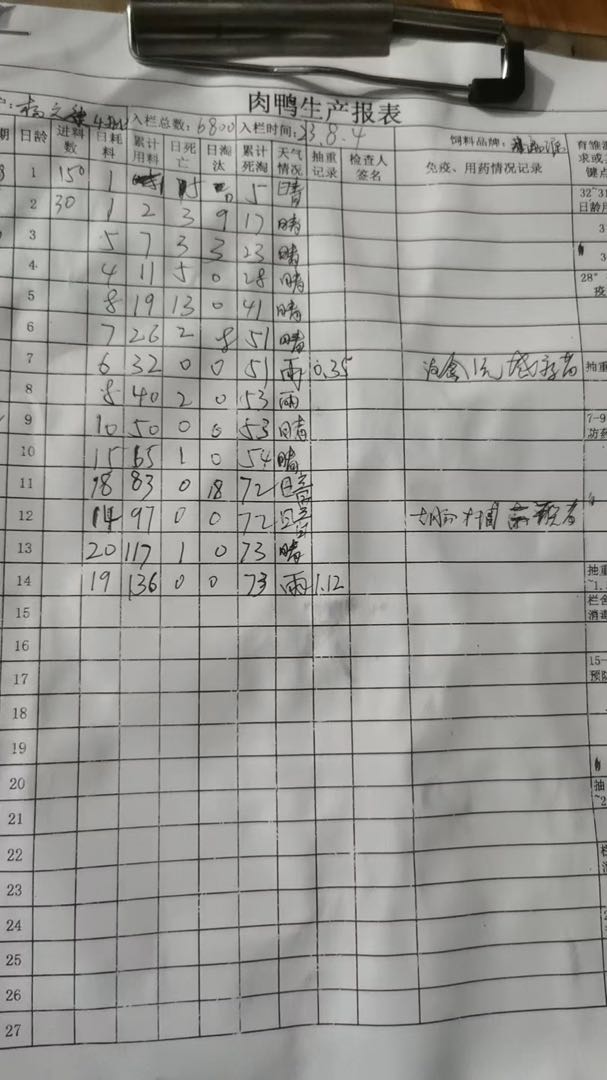 肉鸭生产报表
入栏总数: 6800 入栏时间: 23.8.4 饲料品牌:
期 日龄 进料数 日耗料 累计用料 日死亡 日淘汰 累计死淘 天气情况 抽重记录 检查人签名 免疫、用药情况记录
1 150 1 5 5 晴 32~31
2 30 1 2 3 9 17 晴 日龄
3 5 7 3 3 23 晴 3
4 4 11 5 0 28 晴 3
5 8 19 13 0 41 晴 28°
6 7 26 2 8 51 晴
7 6 32 0 0 51 雨 0.35 抽重
8 8 40 2 0 53 雨
9 10 50 0 0 53 晴 7-9
10 15 65 1 0 54 晴
11 18 83 0 18 72
12 14 97 0 0 72
13 20 117 1 0 73 晴
14 19 136 0 0 73 雨 1.12 抽重
15 栏舍
消毒
16
17 15-
预防
18
19
20 抽
21
22
23
24
25
26
27